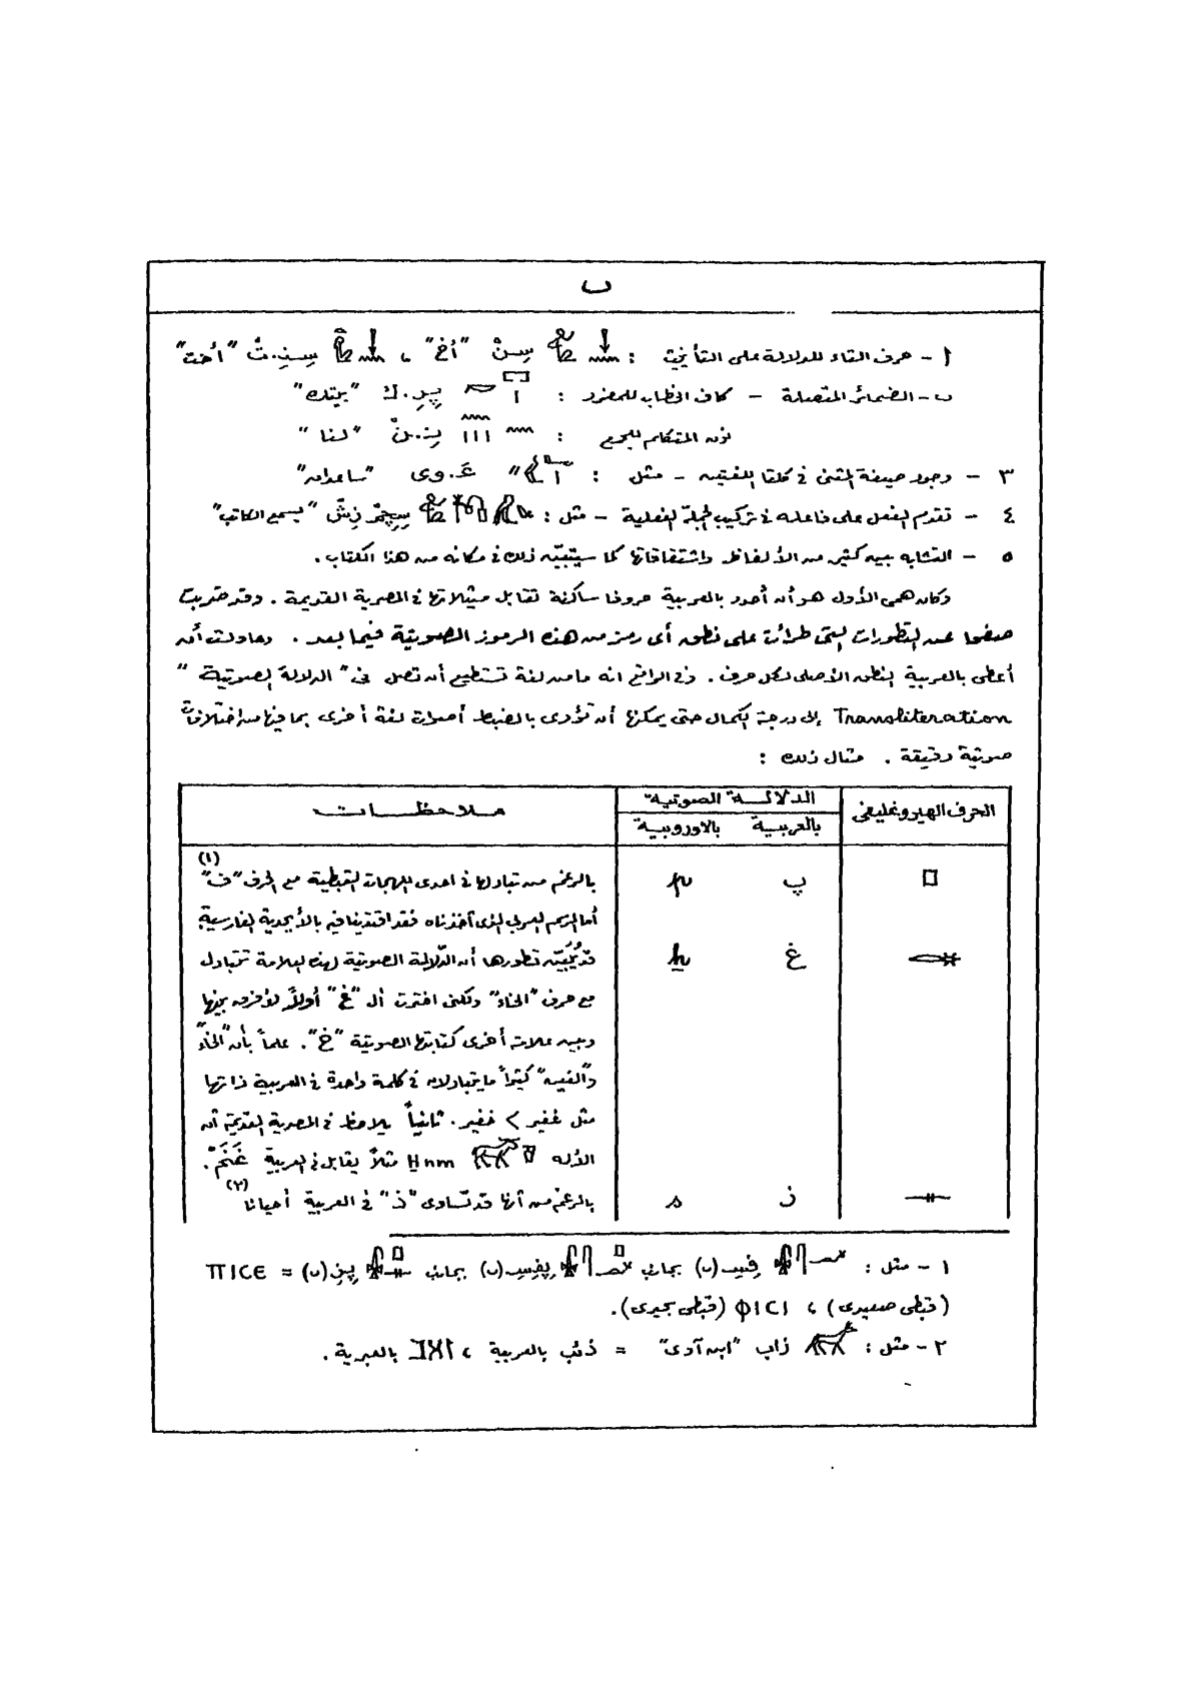 ب
أ - حرف التاء للدلالة على التأنيث : سِنْ "أخ" ، سِنِ.تْ "أخت"
ب - الضمائر المتصلة - كاف الخطاب للمفرد : پِرِ.ك "بيتك"
نون المتكلم للجمع : نِ.نْ "لنا"
٣ - وجود صيغة المثنى فى كلتا اللغتين - مثل : عَ.وى "ساعدان"
٤ - تقدم الفعل على فاعله فى تركيب الجملة الفعلية - مثل : سِچِمْ زِشّ "يسمع الكاتب"
٥ - التشابه بين كثير من الألفاظ واشتقاقاتها كما سيتبيّن ذلك فى مكانه من هذا الكتاب .
وكان همى الأول هو أن أحدد بالعربية حروفا ساكنة تقابل مثيلاتها فى المصرية القديمة . وقد ضربت
صفحا عن التطورات التى طرأت على نطق أى رمز من هذه الرموز الصوتية فيما بعد . وحاولت أن
أعطى بالعربية النطق الأصلى لكل حرف . وفى الواقع انه ما من لغة تستطيع أن تصل فى "الدلالة الصوتية"
Transliteration إلى درجة الكمال حتى يمكنها أن تؤدى بالضبط أصوات لغة أخرى بما فيها من اختلافات
صوتية دقيقة . مثال ذلك :
الحرف الهيروغليفى الدلالة الصوتية ملاحظات
بالعربية بالاوروبية
پ p بالرغم من تبادلها فى احدى اللهجات القبطية مع الحرف "ف" (١)
أما الرسم العربى الذى أخذناه فقد اقتدينا فيه بالأبجدية الفارسية
غ ẖ قد يُبيّن تطورها أن الدّلالة الصوتية لهذه العلامة تتبادل
مع حرف "الخاء" ولكنى اخترت أل "غ" أولاً لأفرق بينها
وبين علامة أخرى كتابتها الصوتية "خ" . علماً بأن "الخاء"
و"الغين" كثيراً ما يتبادلان فى كلمة واحدة فى العربية ذاتها
مثل غفير > خفير . ثانياً يلاحظ فى المصرية القديمة أن
الأله H̱nm مثلاً يقابل فى العربية غَنَمْ .
ز s بالرغم من أنها قد تساوى "ذ" فى العربية أحيانا (٢)
١ - مثل : فسِ(ى) بجانب پفسِ(ى) بجانب پزِ(ى) = ΠΙCΕ
(قبطى صعيدى) ، ΦΙCΙ (قبطى بحيرى).
٢ - مثل : زاب "ابن آوى" = ذئب بالعربية ، זאב بالعبرية .